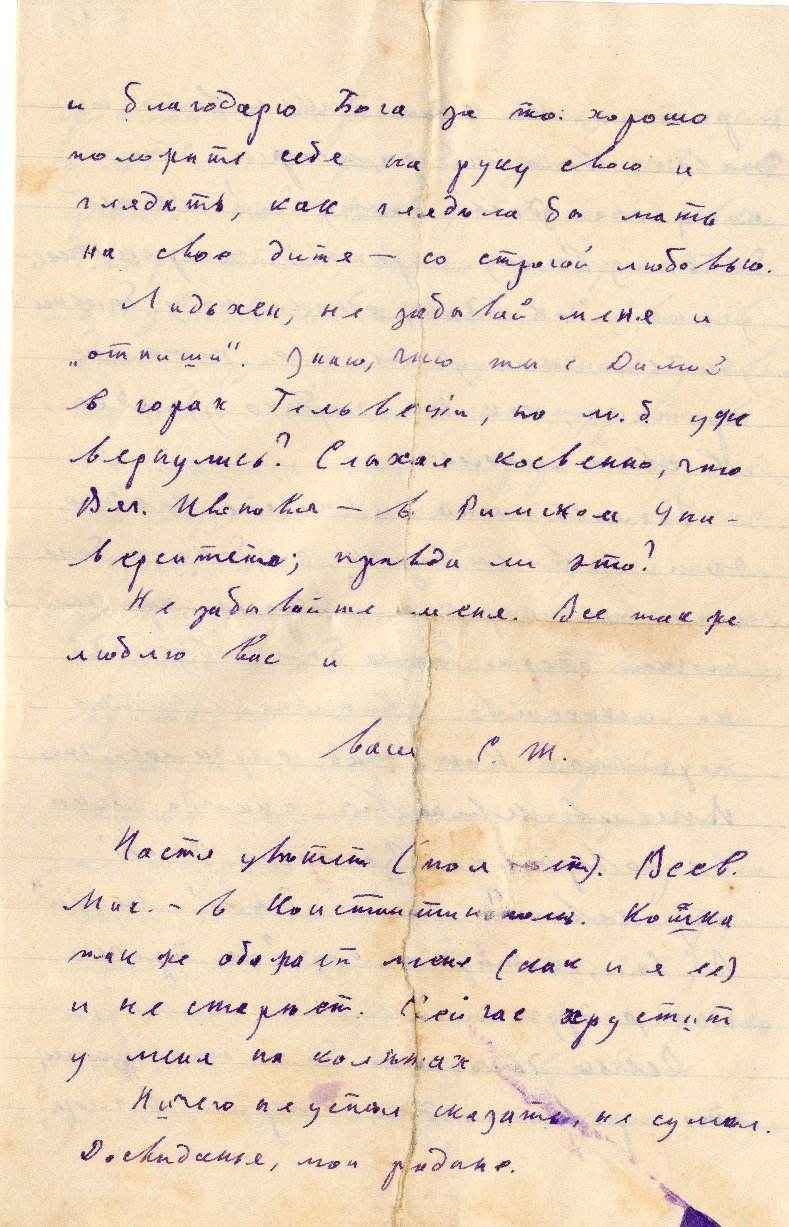 и благодарю Бога за то: хорошо
положить себя на руку свою и
глядеть, как глядела бы мать
на свое дитя — со строгой любовью.
Лидъхен, не забывай меня и
„отпиши“. Знаю, что ты с Димой
в горах Гельвеции, но м. б. уже
вернулись? Слыхал косвенно, что
Вяч. Иванов — в Римском Уни-
верситете; правда ли это?
Не забывайте меня. Все так же
люблю вас и
ваш С. Т.
Настя цветет (полнеет). Всев.
Мих. — в Константинополе. Кошка
так же обожает меня (как и я ее)
и не стареет. Сейчас хрустит
у меня на коленях
Ничего не успел сказать, не сумел.
Досвиданье, мои родные.